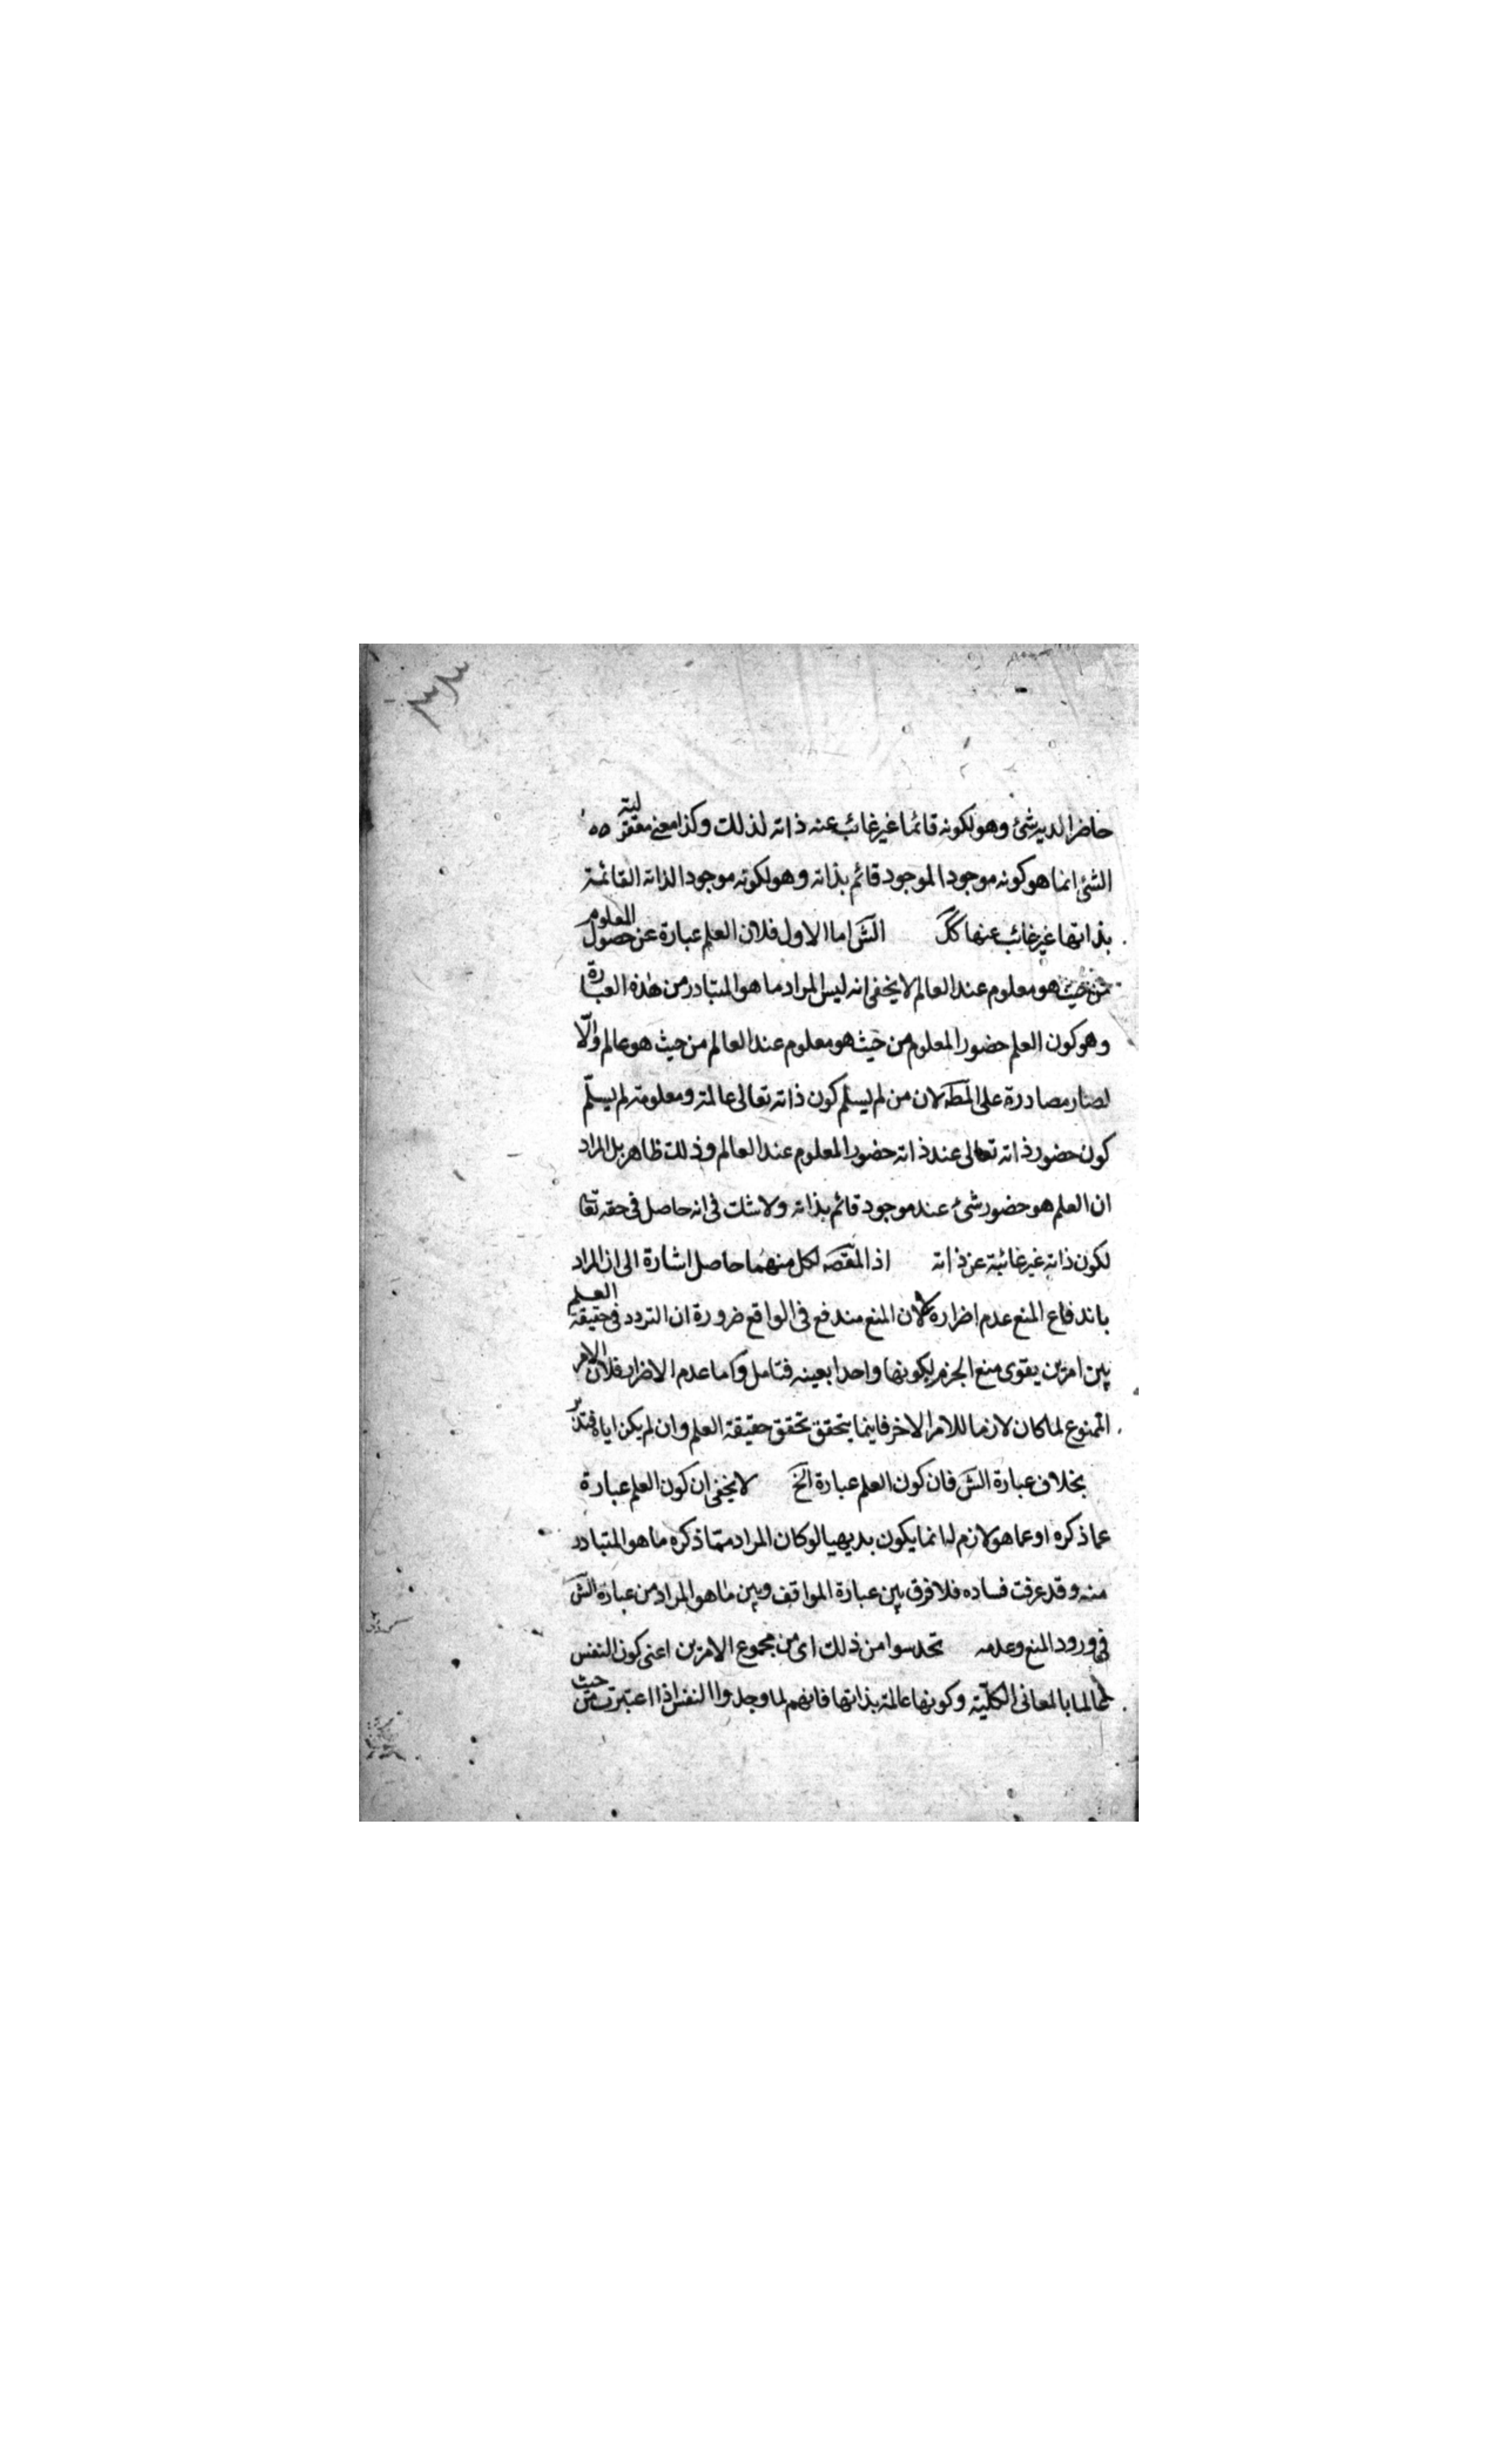 حاضرا لديه شئ وهو لكونه قائما غير غائب عنه ذاته لذلك وكذا معنى معقولية
الشئ انما هو كونه موجودا لموجود قائم بذاته وهو لكونه موجودا لذاته القائمة
بذاتها غير غائب عنها كك الش اما الاول فلان العلم عبارة عن حصول المعلوم
من حيث هو معلوم عند العالم لا يخفى انه ليس المراد ما هو المتبادر من هذه العبارة
وهو كون العلم حضور المعلوم من حيث هو معلوم عند العالم من حيث هو عالم والّا
لصار مصادرة على المط لان من لم يسلم كون ذاته تعالى عالمة ومعلومة لم يسلّم
كون حضور ذاته تعالى عند ذاته حضور المعلوم عند العالم وذلك ظاهر بل المراد
ان العلم هو حضور شئ عند موجود قائم بذاته ولا شك فى انه حاصل فى حقه تعا
لكون ذاته غير غائبة عن ذاته اذ المقصه لكل منهما حاصل اشارة الى ان المراد
باندفاع المنع عدم اضراره لا ان المنع مندفع فى الواقع ضرورة ان التردد فى حقيقة العلم
بين امرين يقوى منع الجزم بكونها واحدا بعينه فتامل واما عدم الاضرار فلان الامر
الممنوع لما كان لازما للامر الاخر فاينما يتحقق تحقق حقيقة العلم وان لم يكن اياه فتدبر
بخلاف عبارة الش فان كون العلم عبارة الخ لا يخفى ان كون العلم عبارة
عما ذكره او عما هو لازم له انما يكون بديهيا لو كان المراد مما ذكره ما هو المتبادر
منه وقد عرفت فساده فلا فرق بين عبارة المواقف وبين ما هو المراد من عبارة الش
فى ورود المنع وعدمه تحدسوا من ذلك اى من مجموع الامرين اعنى كون النفس
عالما بالمعانى الكلّية وكونها عالمة بذاتها فانهم لما وجدوا النفس اذا اعتبرت من حيث